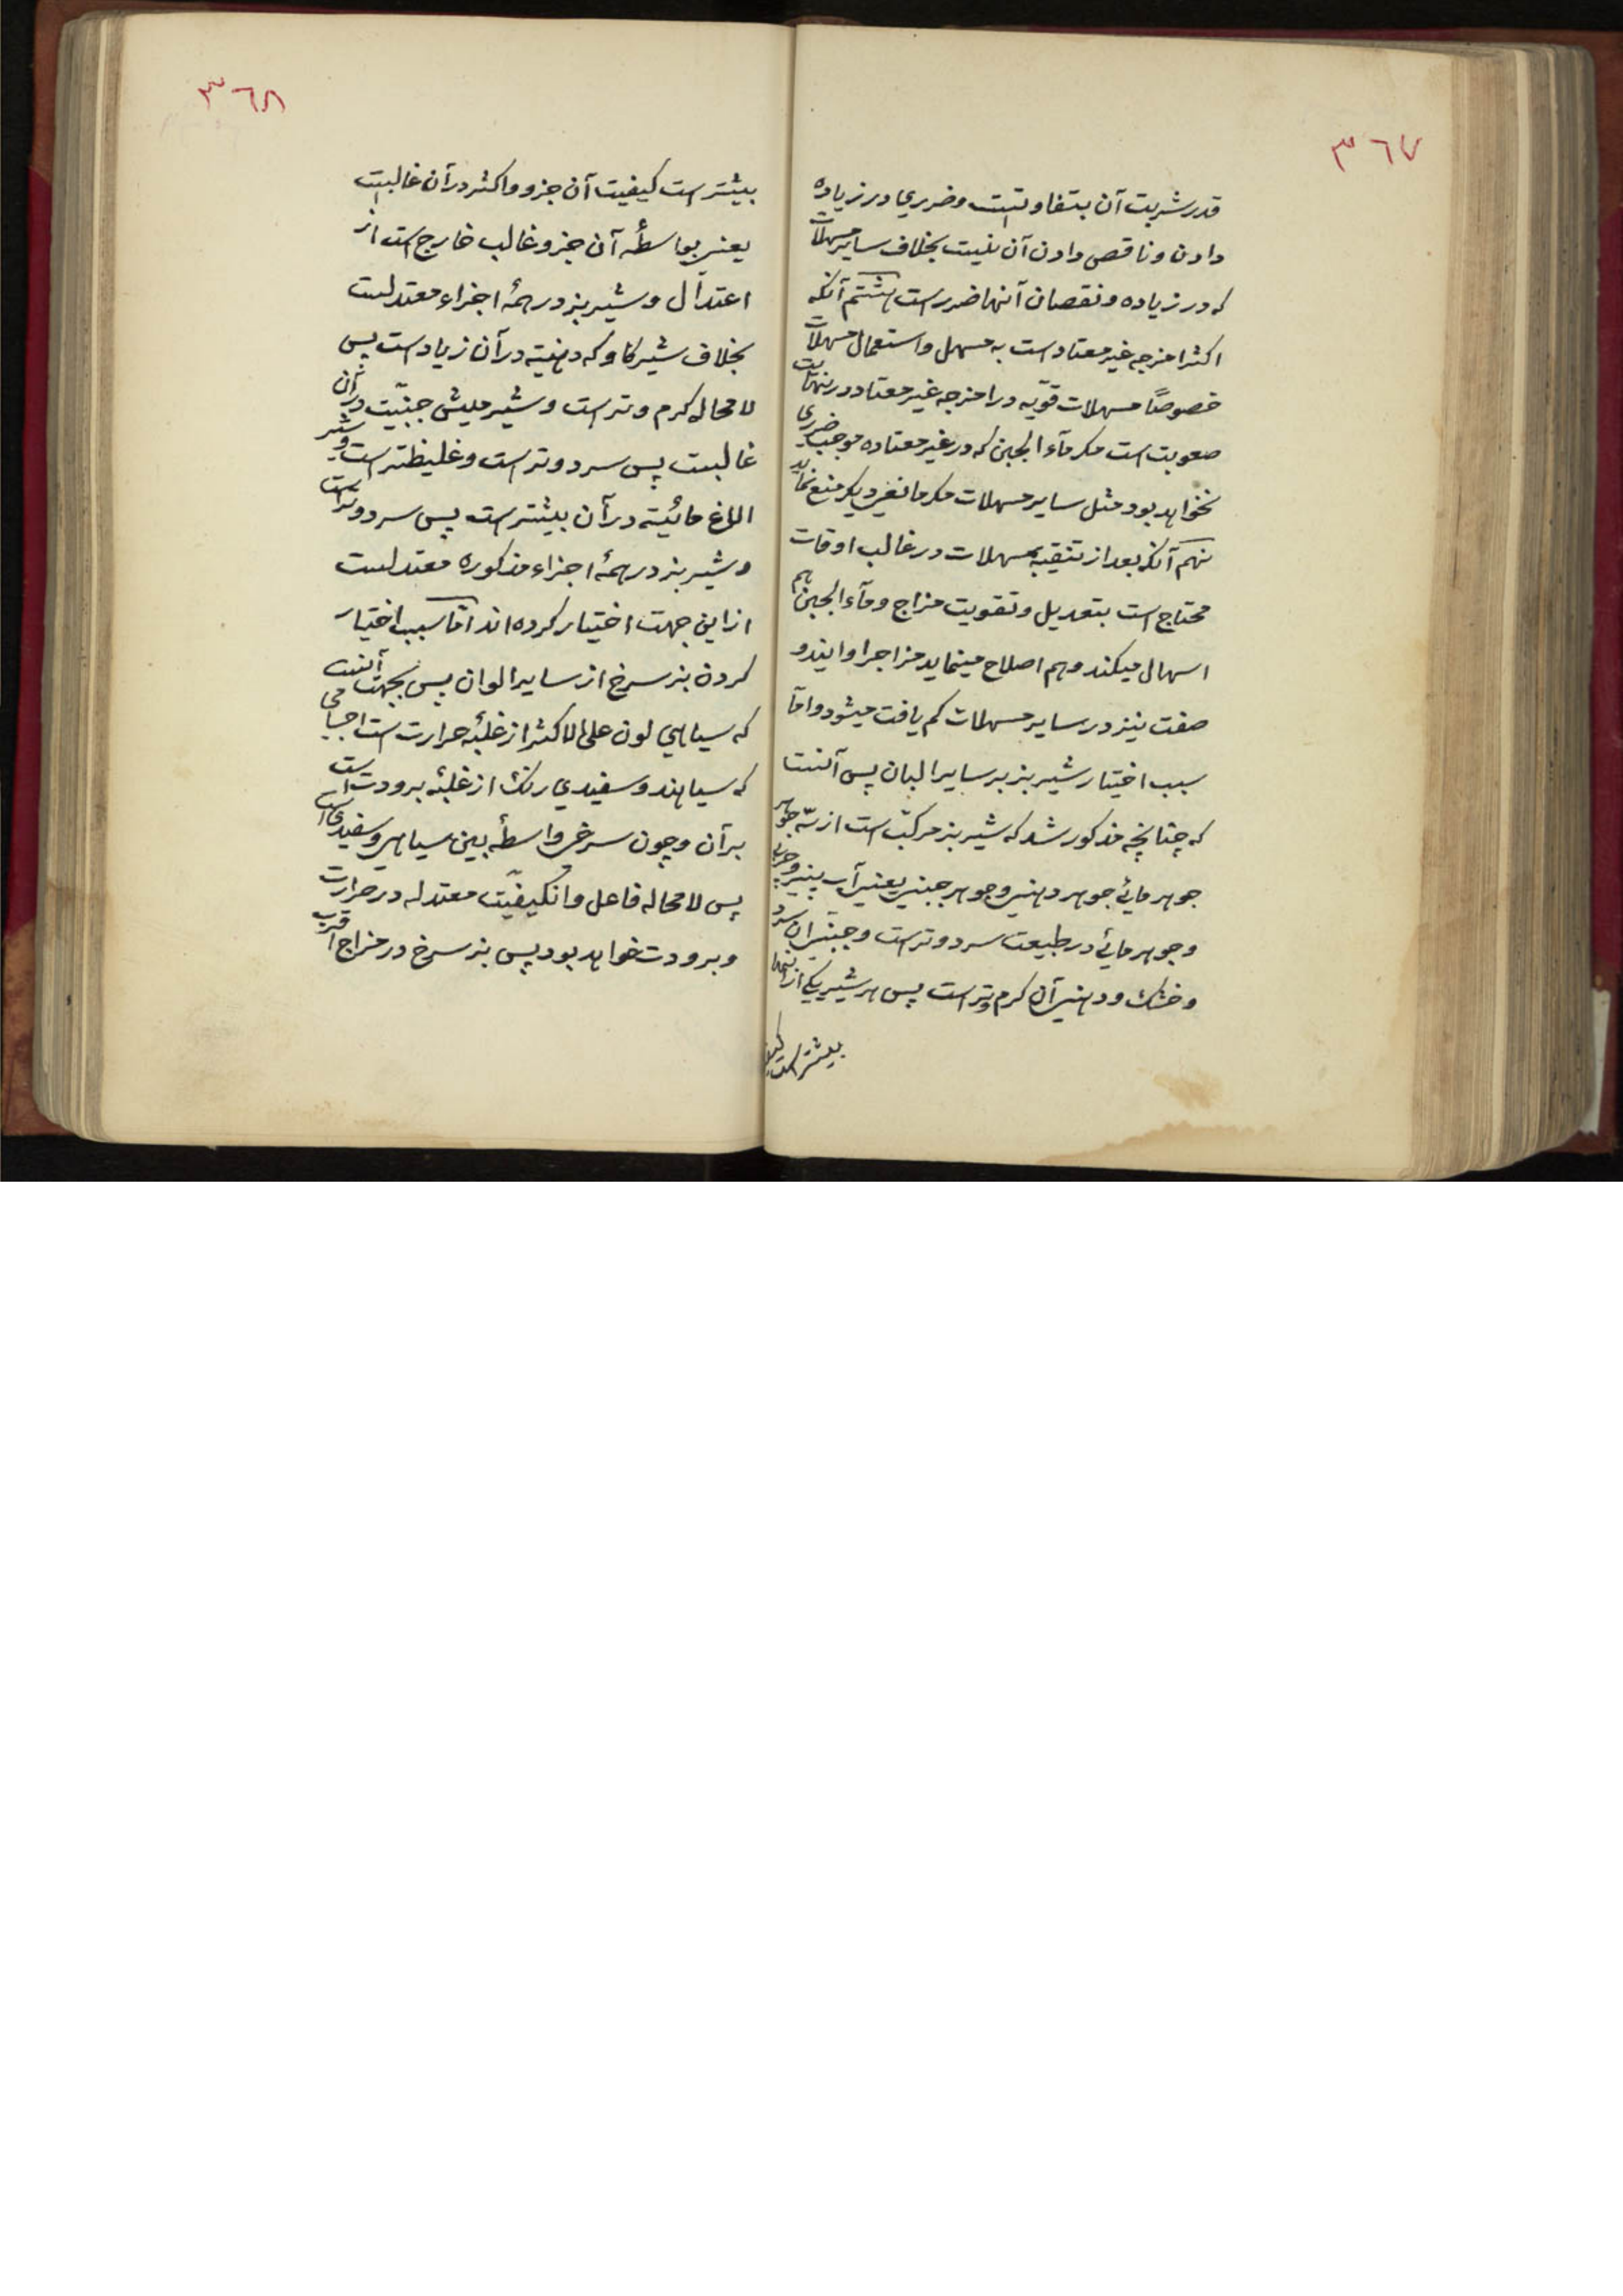 ٣٦٧
قدر شربت آن بتفاوتست و ضرري در زياده
دادن و ناقص دادن آن نيست بخلاف ساير مسهلات
که در زياده و نقصان آنها ضررست هشتم آنکه
اکثر امزجه غير معتاد است به مسهل و استعمال مسهلات
خصوصًا مسهلات قويّه در امزجه غير معتاد در نهايت
صعوبت است مکر مآء الجبن که در غير معتاده موجب ضرري
نخواهد بود مثل ساير مسهلات مکر مانعي ديکر منع نمايد
نهم آنکه بعد از تنقيه بمسهلات در غالب اوقات
محتاج است بتعديل و تقويت مزاج و مآء الجبن هم
اسهال ميکند و هم اصلاح مينمايد مزاجرا و ايندو
صفت نيز در ساير مسهلات کم يافت ميشود و امّا
سبب اختيار شير بز بر ساير البان پس آنست
که چنانچه مذکور شد که شير بز مرکبّ است از سه جوهر
جوهر مائي جوهر دهني و جوهر جبني يعني آب پنير و چربي
و جوهر مائي در طبيعت سرد و تر است و جبني آن سرد
و خشک و دهني آن کرم و تر است پس هر شير يکي از اينها
بيشتر است کيف
٣٦٨
بيشتر است کيفيت آن جزو و اکثر در آن غالبست
يعني بواسطهٔ آن جزو غالب خارج است از
اعتدال و شير بز در همهٔ اجزاء معتدلست
بخلاف شير کاو که دهنيّة در آن زياد است پس
لا محاله کرم و تر است و شير ميش جبنيّت در آن
غالبست پس سرد و تر است و غليظتر است و شير
الاغ مائيّة در آن بيشتر است پس سرد و تر است
و شير بز در همهٔ اجزاء مذکوره معتدلست
از اين جهت اختيار کرده اند امّا سبب اختيار
کردن بز سرخ از ساير الوان پس بجهت آنست
که سياهي لون على الاکثر از غلبهٔ حرارت است اجسامي
که سياهند و سفيدي رنک از غلبهٔ برودت است
بر آن و چون سرخي واسطهٔ بين سياهي و سفيدي است
پس لا محاله فاعل و انکيفيّت معتدله در حرارت
و برودت خواهد بود پس بز سرخ در مزاج اقرب